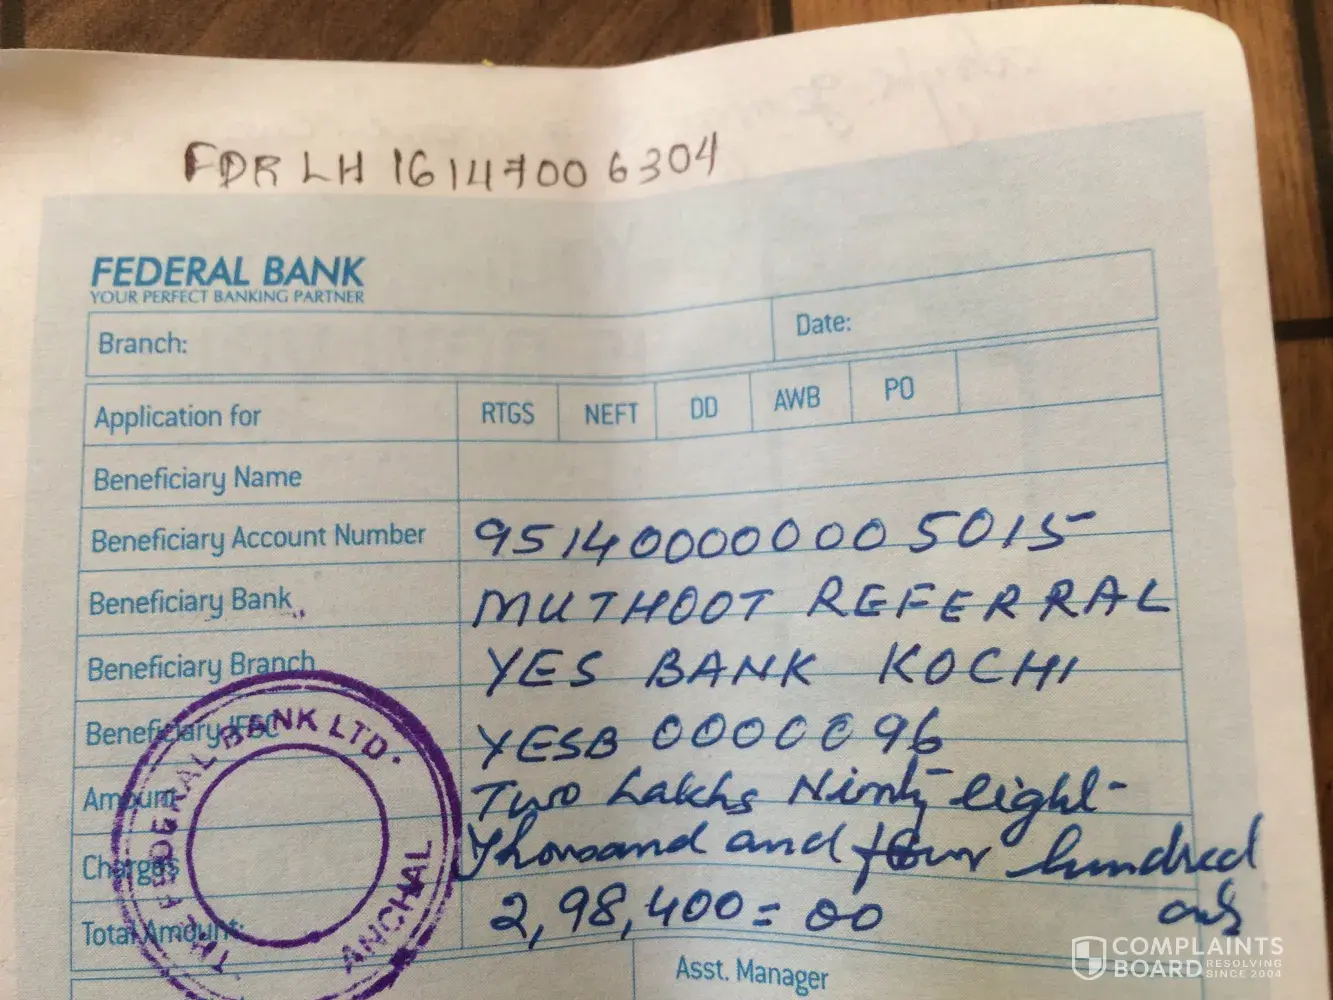 FDRLH 16147006304
FEDERAL BANK
YOUR PERFECT BANKING PARTNER
Branch:
Date:
Application for RTGS NEFT DD AWB PO
Beneficiary Name
Beneficiary Account Number 951400000005015
Beneficiary Bank MUTHOOT REFERRAL
Beneficiary Branch YES BANK KOCHI
Beneficiary IFSC YESB 0000096
Amount Two Lakhs Ninty eight
Charges Thousand and four hundred
only
Total Amount: 2,98,400=00
THE FEDERAL BANK LTD.
ANCHAL
Asst. Manager
COMPLAINTS
BOARD RESOLVING
SINCE 2004